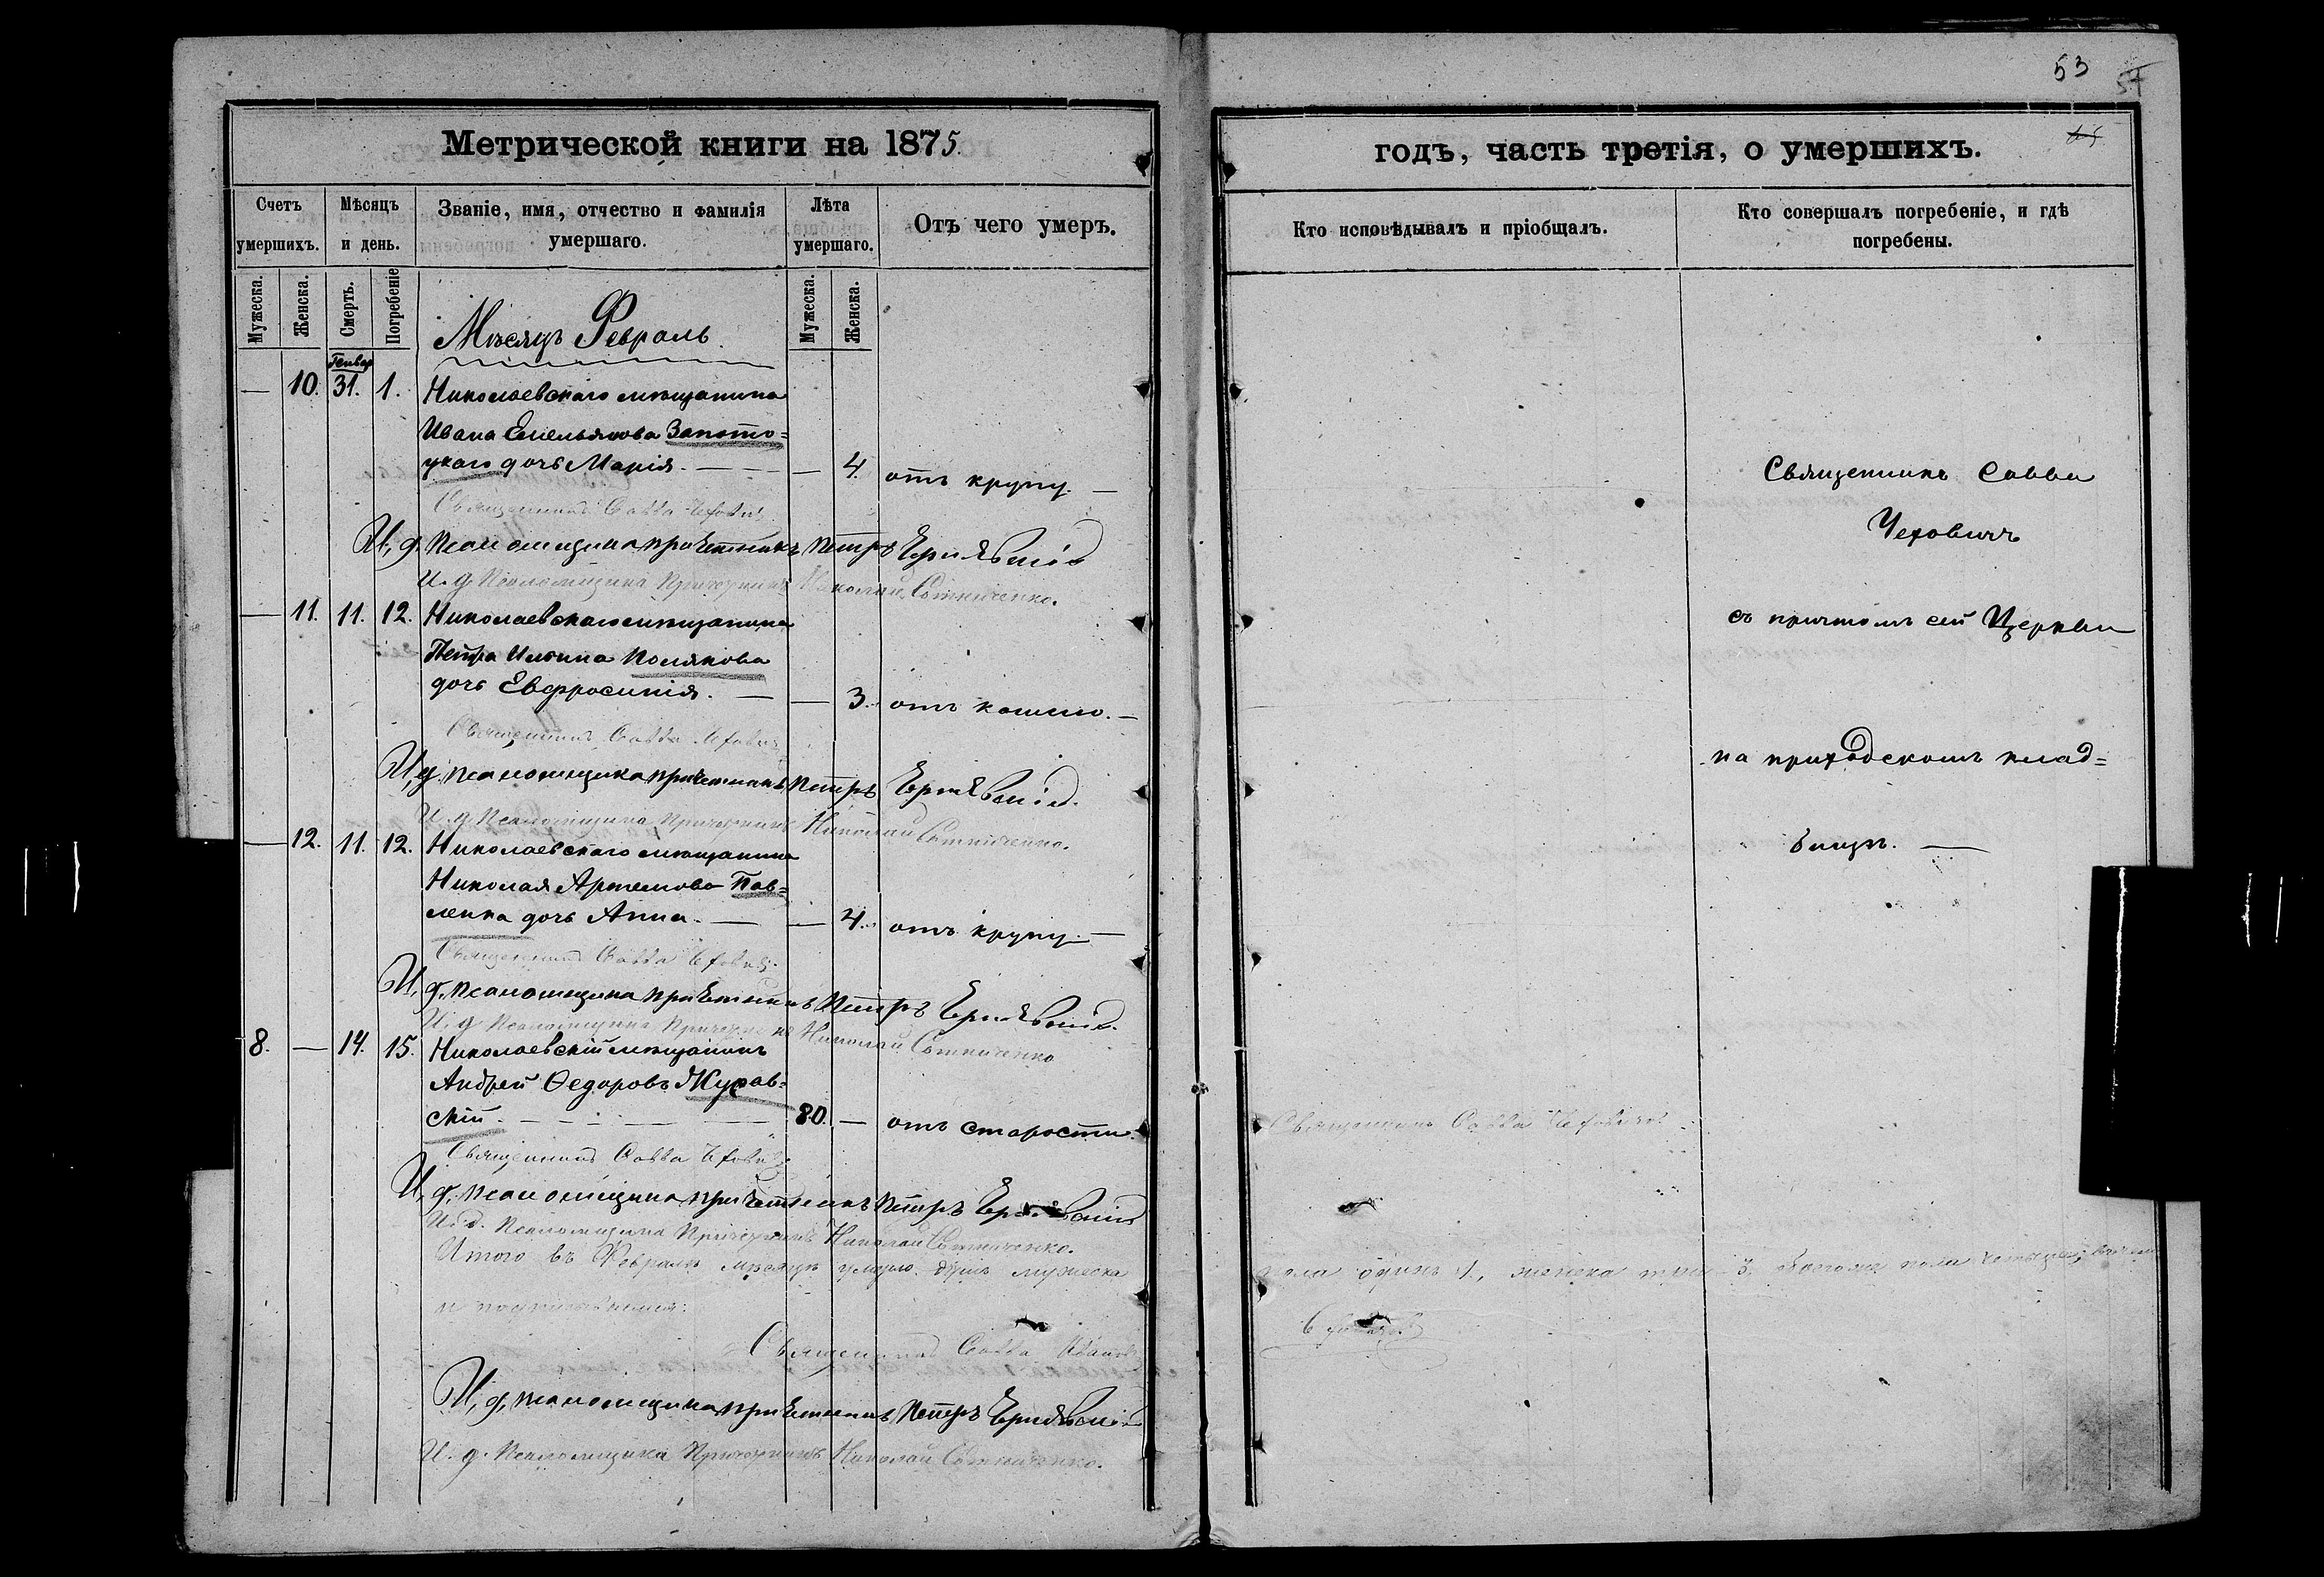 53
54
Метрической книги на 1875.
годъ, часть третія, о умершихъ.
Счетъ умершихъ.
Мѣсяцъ и день.
Званіе, имя, отчество и фамилія умершаго.
Лѣта умершаго.
Отъ чего умеръ.
Кто исповѣдывалъ и пріобщалъ.
Кто совершалъ погребеніе, и гдѣ погребены.
Мужеска.
Женска.
Смерть.
Погребеніе
Мужеска.
Женска.
Мѣсяцъ Февраль.
Генвар
— 10. 31. 1. Николаевскаго мѣщанина
Ивана Емельянова Запото=
цкаго дочь Марія. — — 4. отъ крупу. —
Священникъ Савва Чехович
И, д. псаломщика причетникъ Петръ
И. д. Псаломщика Причетникъ Николай Сотниченко.
— 11. 11. 12. Николаевскаго мѣщанина
Петра Ильина Полякова
дочь Евфросинія. — — 3. отъ кашлю. —
Священникъ Савва Чехович
И, д. псаломщика причетникъ Петръ
И. д. Псаломщика Причетникъ Николай Сотниченко.
— 12. 11. 12. Николаевскаго мѣщанина
Николая Артемова Пав=
ленка дочь Анна. — — 4. отъ крупу. —
Священникъ Савва Чехович
И, д. псаломщика причетникъ Петръ
И. д. Псаломщика Причетникъ Николай Сотниченко
8. — 14. 15. Николаевскій мѣщанинъ
Андрей Федоровъ Журав=
скій. — 80. — отъ старости.
Священникъ Савва Чехович
И, д. псаломщика причетникъ Петръ
И. д. Псаломщика Причетникъ Николай Сотниченко.
Итого въ Февралѣ мѣсяцѣ умерло душъ мужеска
и подписываемся:
Священникъ Савва Иванов
И, д. псаломщика причетникъ Петръ
И. д. Псаломщика Причетникъ Николай Сотниченко.
Священникъ Савва Чеховичъ
пола одинъ 1, женска три 3. обоего пола четыре;
Священникъ Савва
Чеховичъ
съ причтомъ сей Церкви
на приходскомъ клад=
бищѣ. —